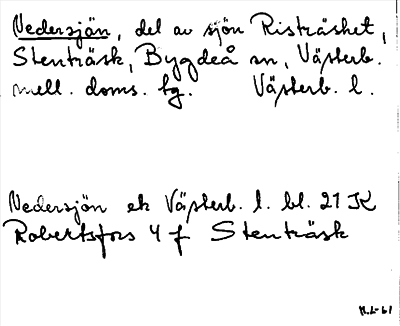 Nedersjön, del av sjön Risträsket,
Stenträsk, Bygdeå sn, Västerb.
mell. doms. tg. Västerb. l.
Nedersjön ek Västerb. l. bl. 21 K
Robertsfors 4 f Stenträsk